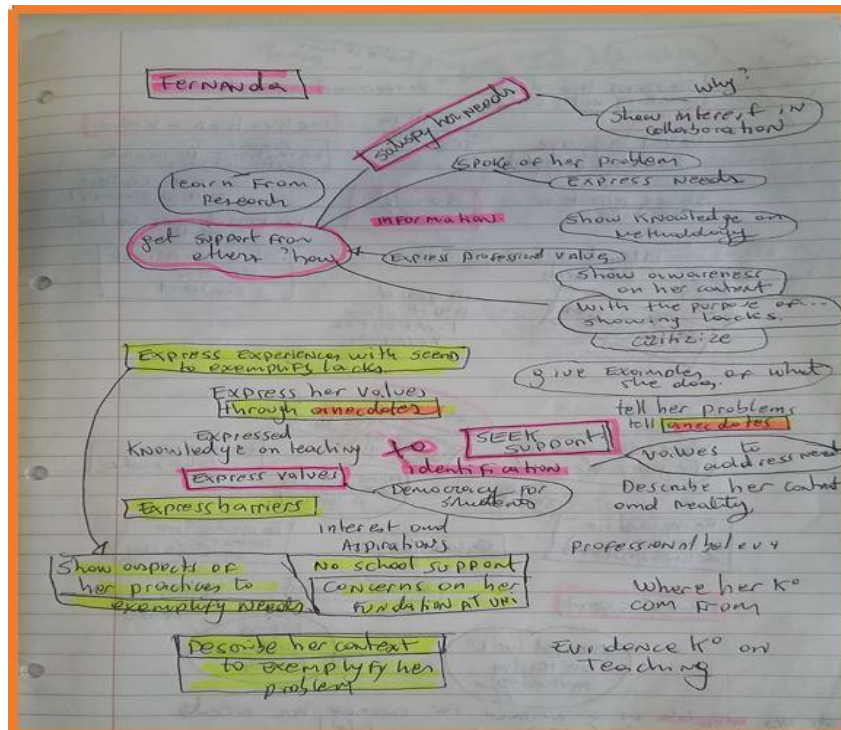 Fernanda
why?
Satisfy her needs
Show interest in
collaboration
Spoke of her problem
Express Needs
learn From
Research
information
Show Knowledge on
Methodology
get support from
others? how
Express Professional values
Show awareness
on her context
With the purpose of...
showing lacks.
critizize
Express Experiences with
to exemplify lacks.
give Examples of what
she does.
Express her values
through anecdotes
tell her problems
tell anecdotes
Expressed
Knowledge on teaching
to
SEEK
SUPPORT
identification
values to
address need
Express values
Democracy for
students
Describe her context
and reality
Express barriers
interest and
Aspirations
Professional
Show aspects of
her practices to
exemplify Needs
No school support
Concerns on her
FUNDATION AT UNI
Where her K°
com From
Describe her context
to exemplyfy her
problem
Evidence K° on
Teaching